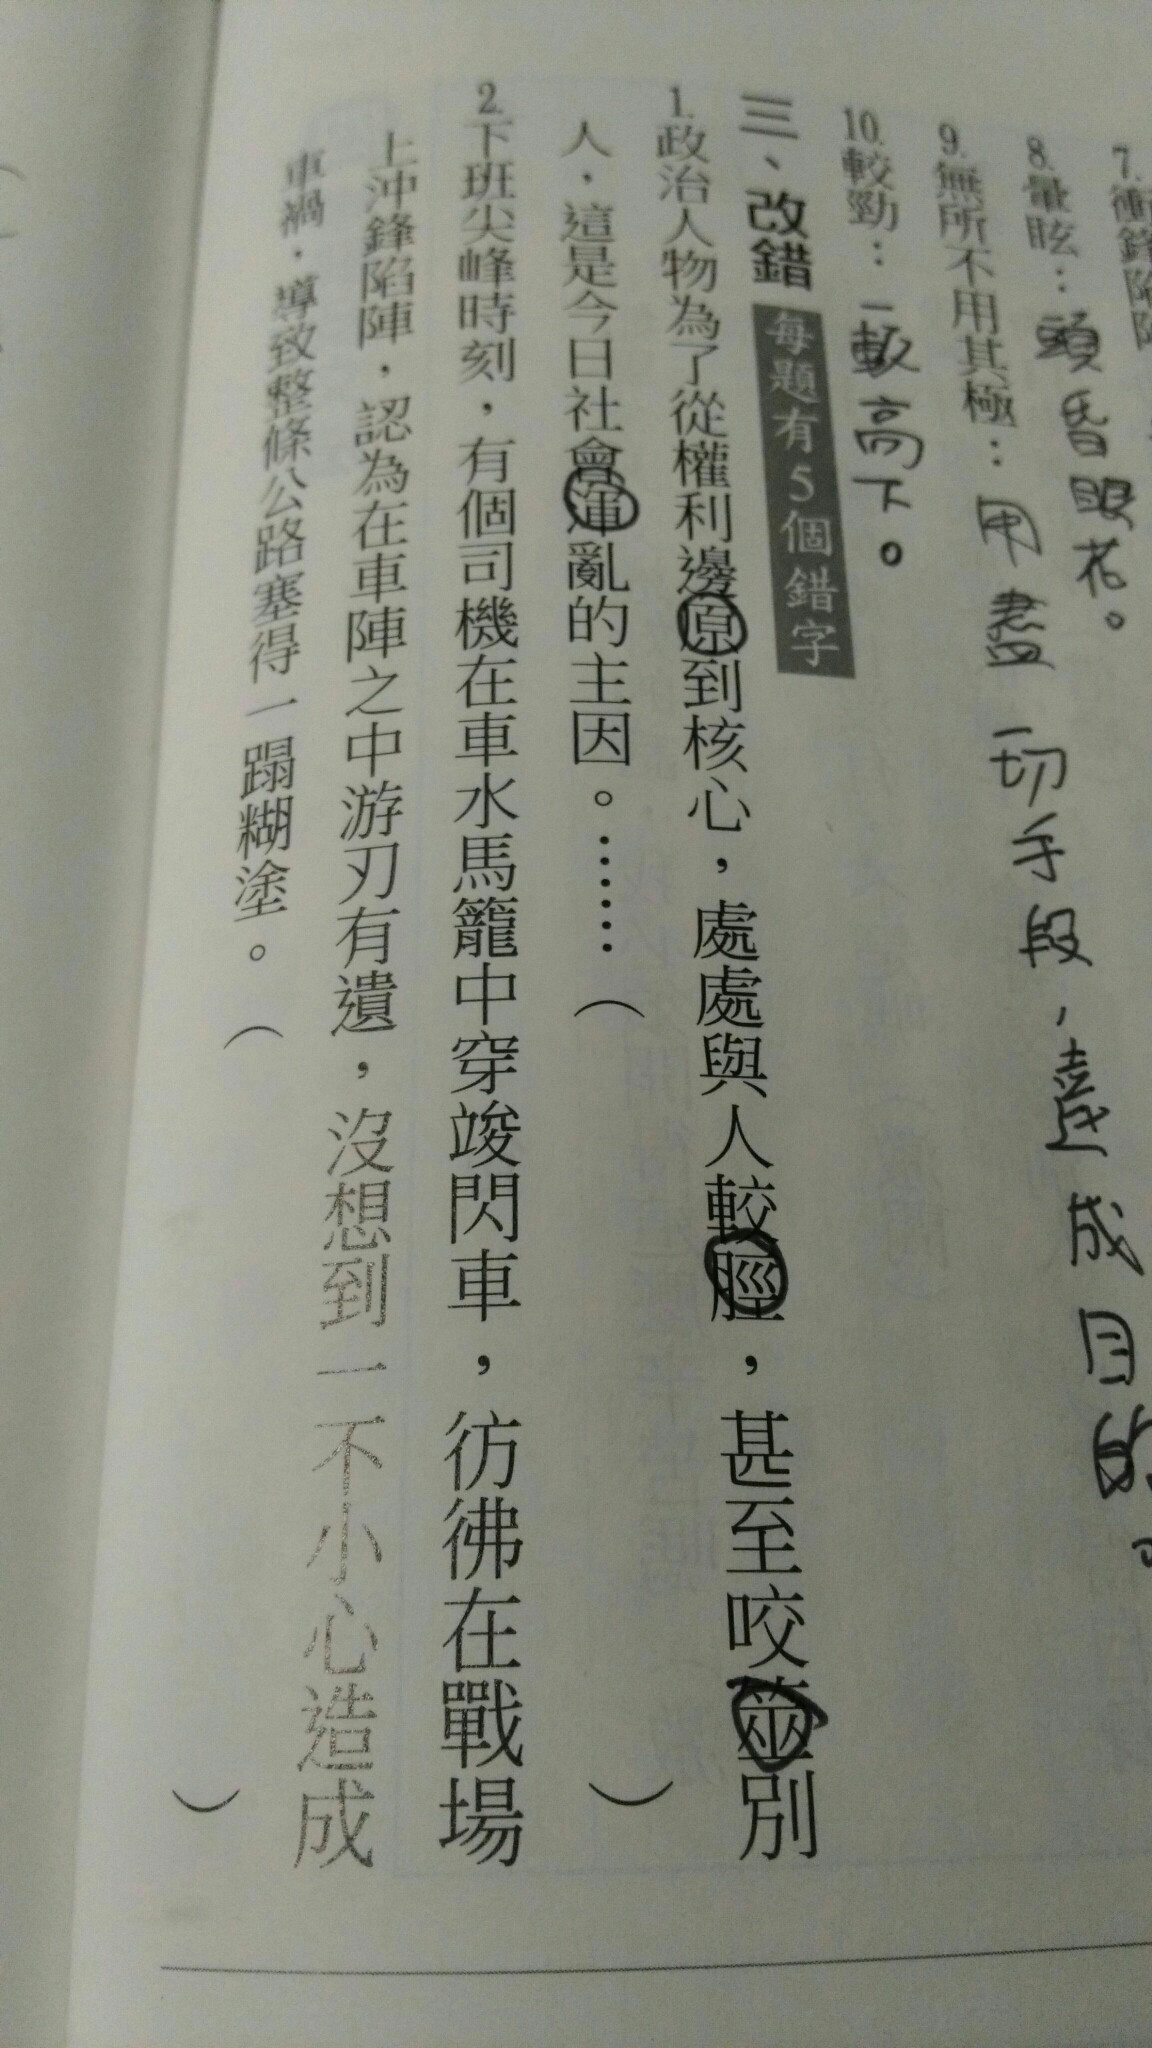 7.衝鋒陷陣
8.暈眩：頭昏眼花。
9.無所不用其極：用盡一切手段，達成目的。
10.較勁：一較高下。
三、改錯 每題有5個錯字
1.政治人物為了從權利邊原到核心，處處與人較脛，甚至咬筮別
人，這是今日社會渾亂的主因。⋯⋯（ ）
2.下班尖峰時刻，有個司機在車水馬籠中穿竣閃車，彷彿在戰場
上沖鋒陷陣，認為在車陣之中游刃有遺，沒想到一不小心造成
車禍，導致整條公路塞得一蹋糊塗。（ ）